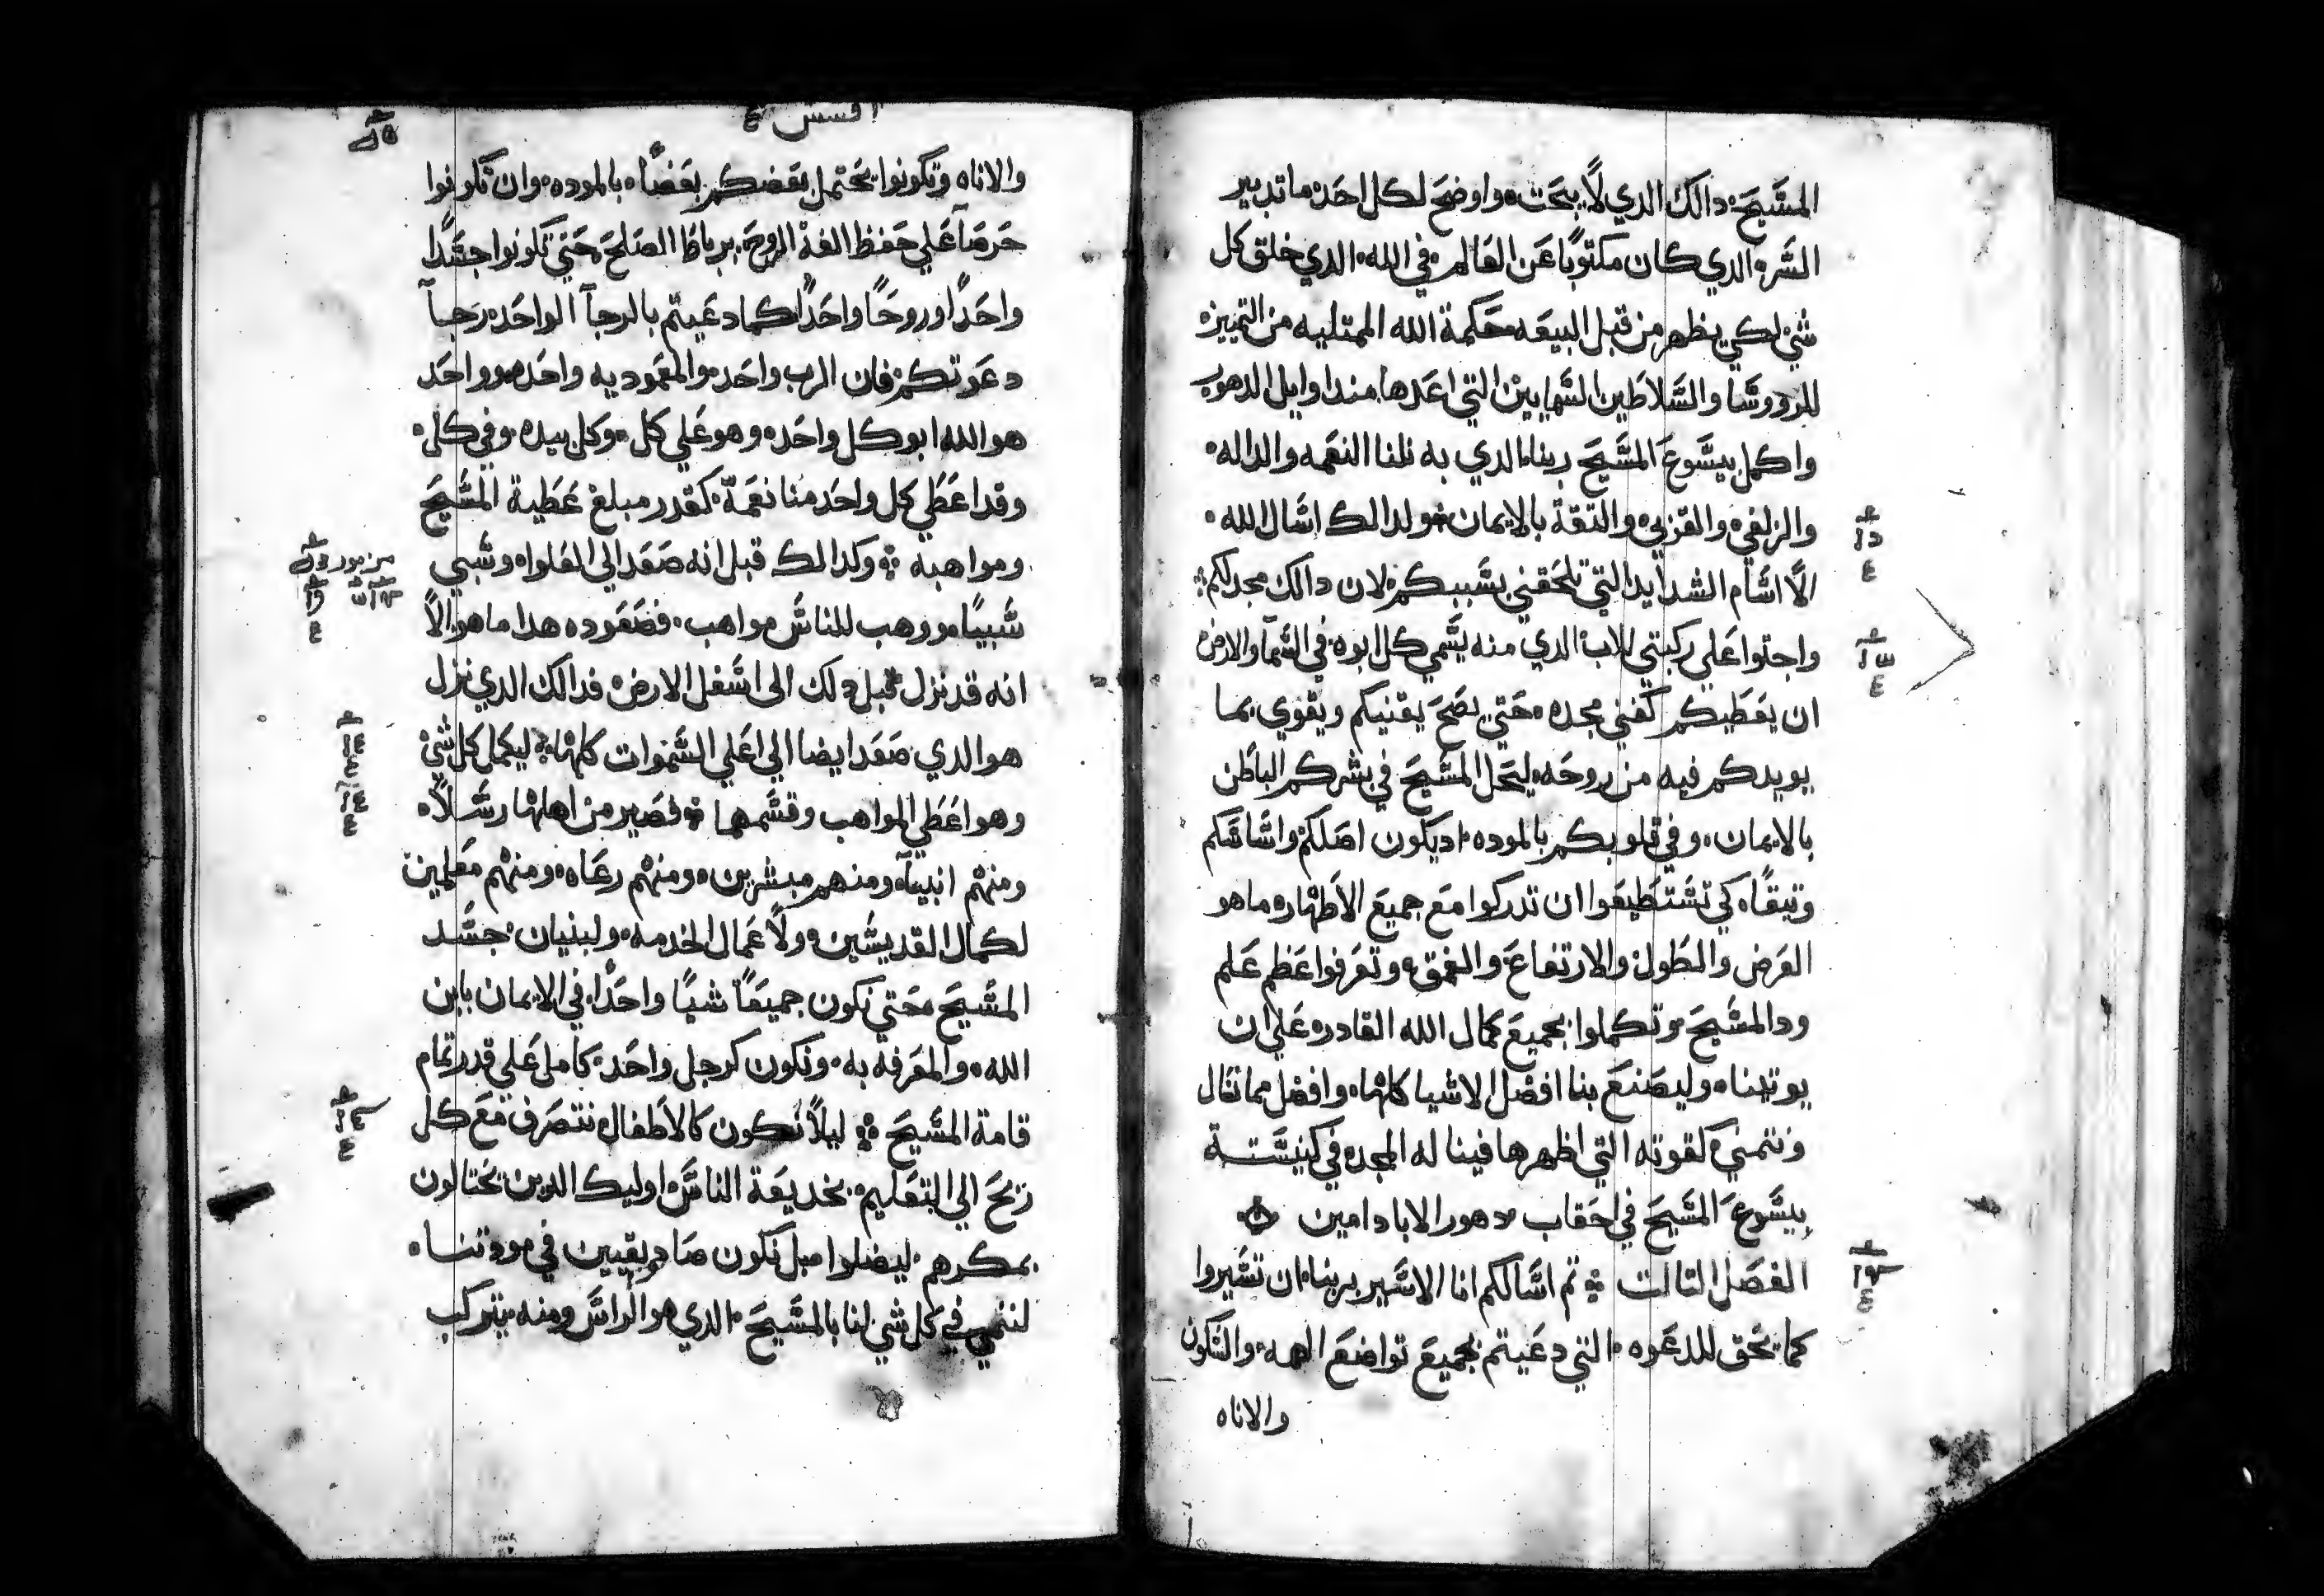 المسيح دالك الدي لا يبحت واوضح لكل احد ما تدبير
السر الدي كان مكتوبًا عن العالم في الله الدي خلق كل
شي لكي يظهر من قبل البيعه حكمة الله الممتليه من التمييز
للرووسا والسلاطين السمايين التي اعدها مند اوايل الدهور
واكمل بيسوع المسيح ربنا الدي به نلنا النعمه والداله
والزلفي والقربي والتقة بالايمان ولدالك اسال الله
الا اسام الشدايد التي تلحقني بسببكم لان دالك مجدلكم
واجتوا علي ركبتي للاب الدي منه يسمي كل ابوه في السما والارض
ان يعطيكم كغني مجده حتي يصح يقنيكم ويقوي بما
يويدكم فيه من روحه ليحل المسيح في بشركم الباطن
بالايمان وفي قلوبكم بالموده اد يكون اصلكم واساسكم
وتيقًا كي تستطيعوا ان تدركوا مع جميع الاطهار ما هو
العرض والطول والارتفاع والعمق وتعرفوا عظم علم
ود المسيح وتكملوا بجميع كمال الله القادر علي ان
يوتينا وليصنع بنا افضل الاشيا كلها وافضل مما نسال
ونتمني كقوته التي اظهرها فينا له المجد في كنيسته
بيسوع المسيح في احقاب دهور الاباد امين
الفصل التالت تم اسالكم انا الاسير بربنا ان تسيروا
كما يحق للدعوه التي دعيتم بجميع تواضع الهمه والسكون
والاناه
افسس ٤
والاناه وتكونوا يحتمل بعضكم بعضًا بالموده وان تكونوا
حرصآ علي حفظ الفة الروح برباط الصلح حتي تكونوا جسدًا
واحدًا وروحًا واحدًا كما دعيتم بالرجآ الواحد رجآ
دعوتكم فان الرب واحد والمعموديه واحده وواحد
هو الله ابو كل واحد وهو علي كل وكل بيده وفي كل
وقد اعطي كل واحد منا نعمة كقدر مبلغ عطية المسيح
ومواهبه وكدالك قبل انه صعد الي العلوا وسبي
سبيًا ووهب للناس مواهب فصعوده هدا ما هو الا
انه قد نزل قبل دلك الي اسفل الارض فدالك الدي نزل
هو الدي صعد ايضا الي اعلي السموات كلها ليكمل كل شي
وهو اعطي المواهب وقسمها فصير من اهلها رسلا
ومنهم انبيآ ومنهم مبشرين ومنهم رعاه ومنهم معلمين
لكمال القديسين ولاعمال الخدمه ولبنيان جسد
المسيح حتي نكون جميعًا شيًا واحدًا في الايمان بابن
الله والمعرفه به ونكون كرجل واحد كامل علي قدر تمام
قامة المسيح ليلا نكون كالاطفال نتصرف مع كل
ريح الي التعليم بخديعة الناس اوليك الدين يحتالون
بمكرهم ليضلوا بل نكون صادقيين في مودتنا
لننمي في كل شي لنا بالمسيح الدي هو الراس ومنه يتركب